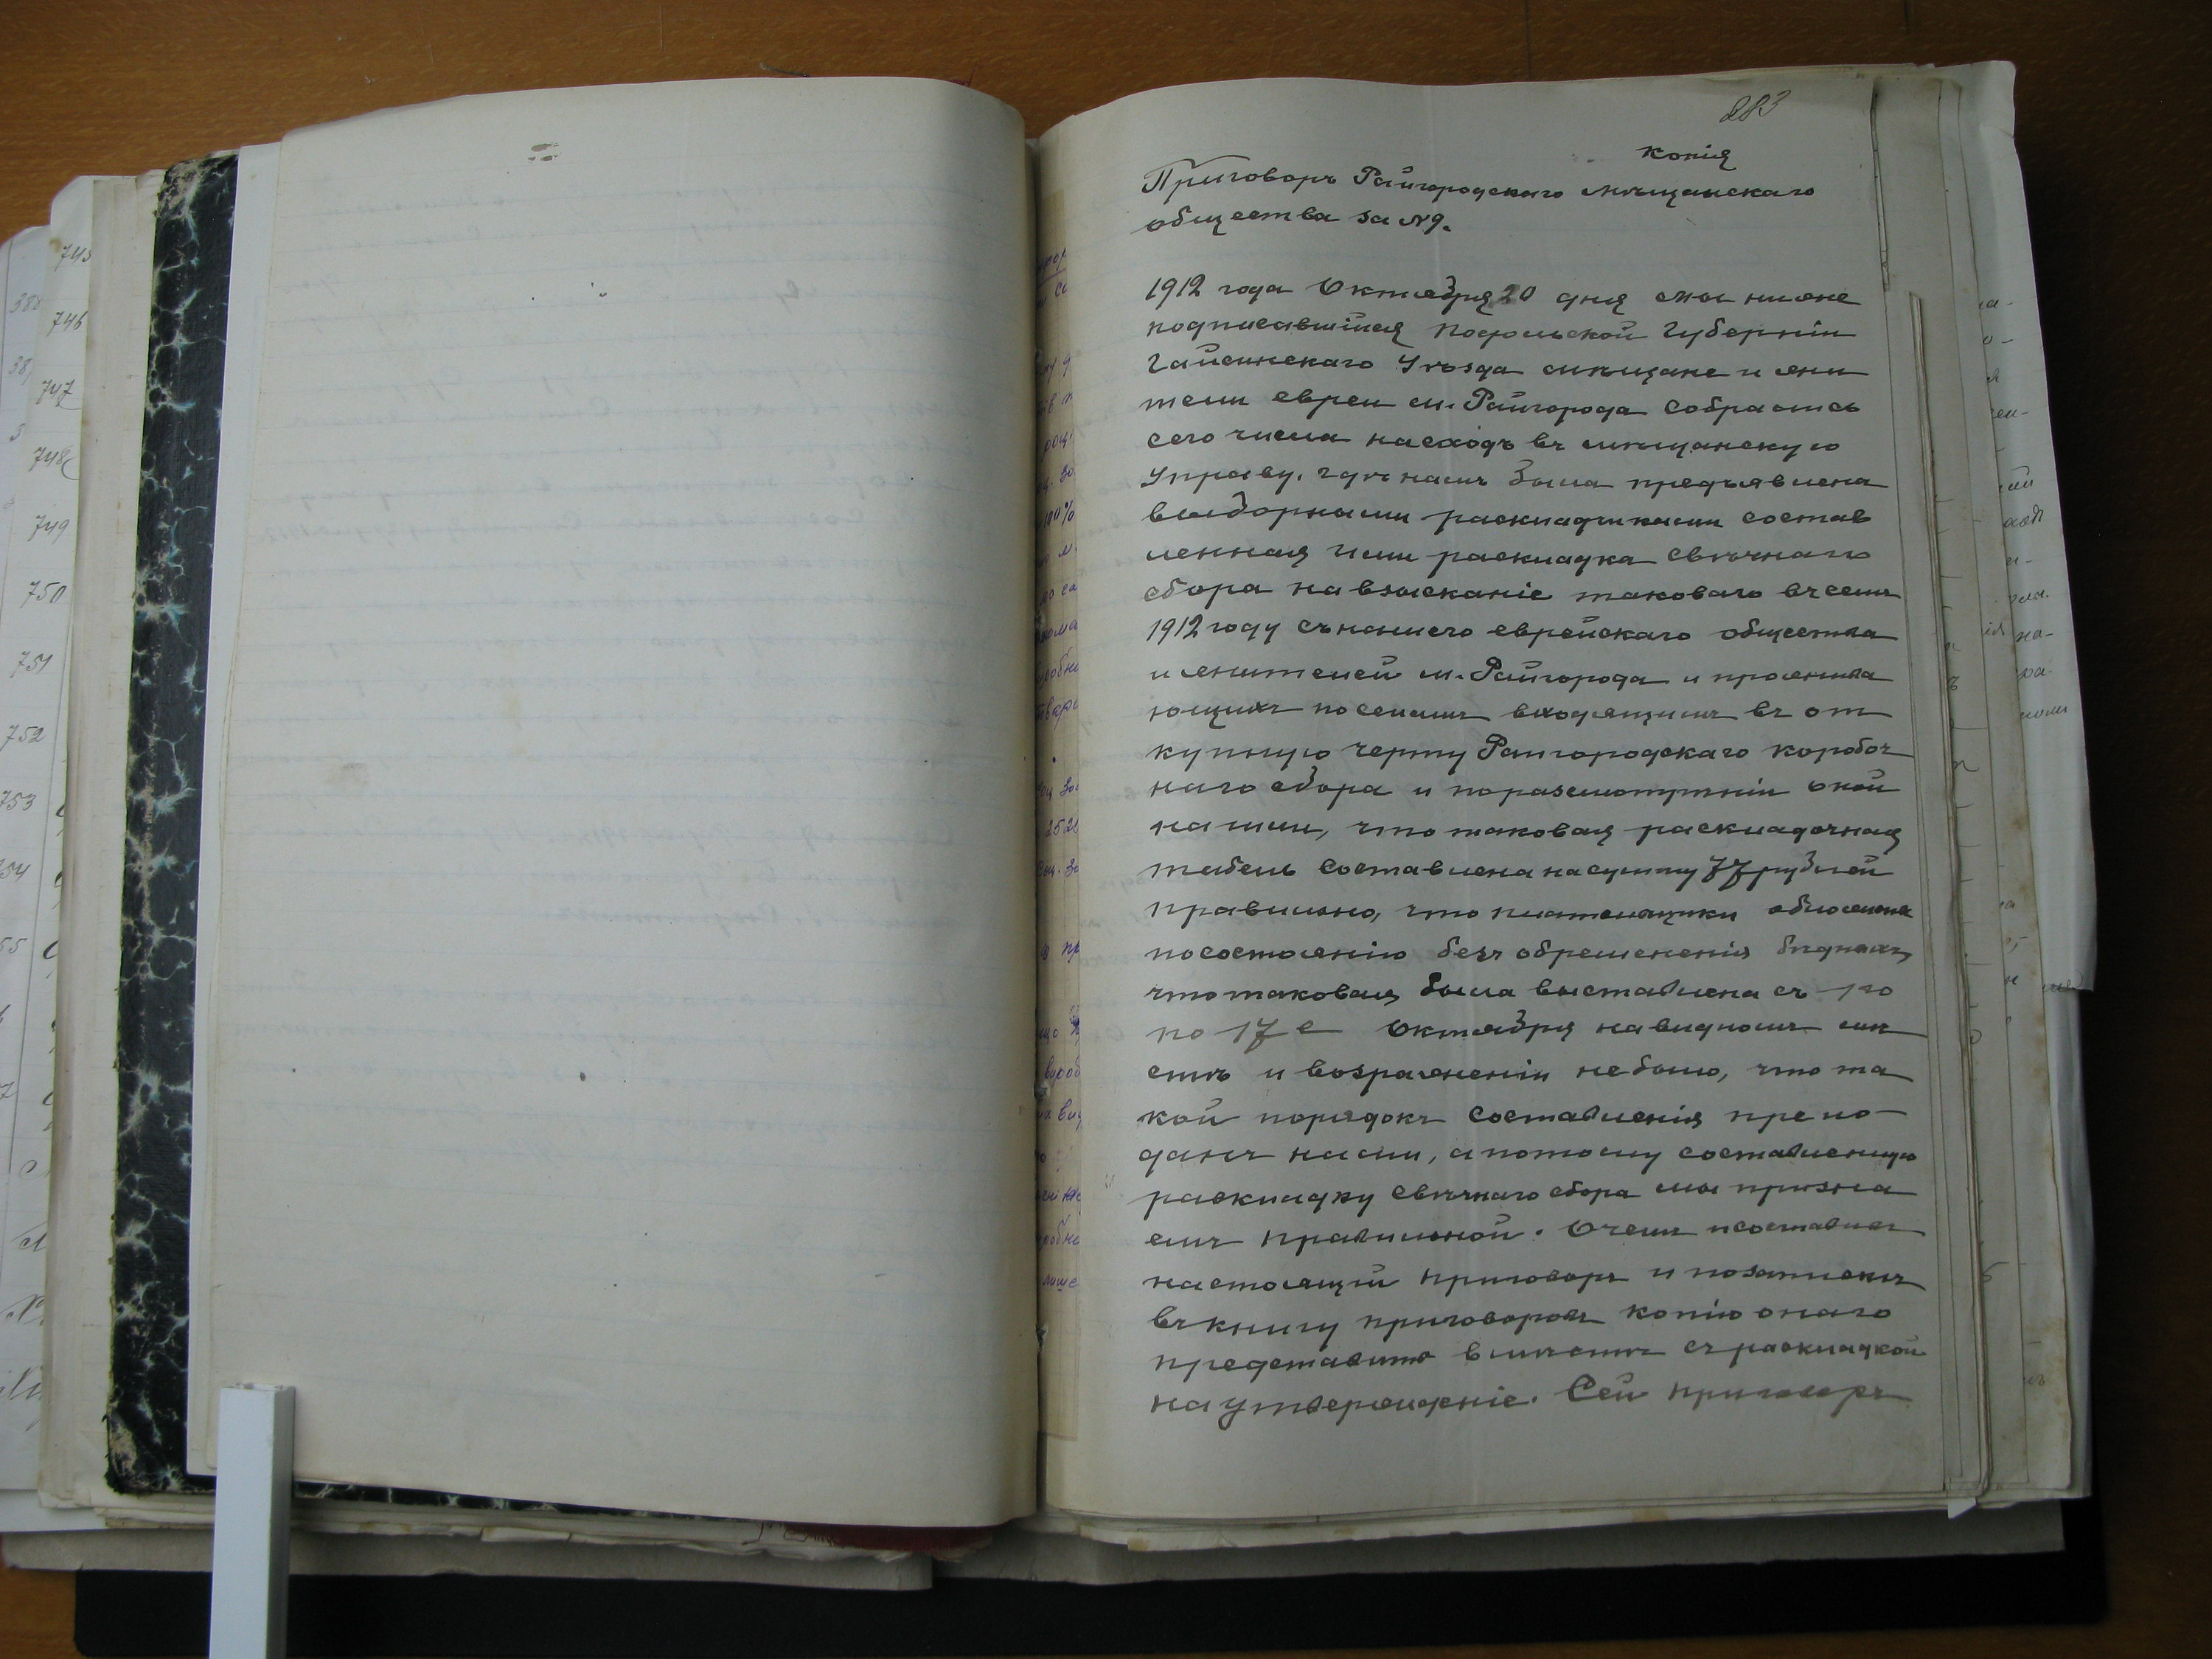 283
копія
Приговоръ Райгородскаго мѣщанскаго
общества за №9.
1912 года Октября 20 дня мы ниже
подписавшіися Подольской Губерніи
Гайсинскаго Уѣзда мѣщане и жи
тели евреи м. Райгорода собрались
сего числа насходъ въ мѣщанскую
Управу, гдѣ намъ была предъявлена
выборными раскладчиками состав
ленная ими раскладка свѣчнаго
сбора на взысканіе таковаго въ семъ
1912 году съ нашего еврейскаго общества
и жителей м. Райгорода и прожива
ющихъ по селамъ входящимъ въ от
купную черту Райгородскаго коробоч
наго сбора и поразсмотрѣніи оной
нашли, что таковая раскладочная
табель составлена на сумму 77 рублей
правильно, что плательщики обложены
посостоянію безъ обремененія бѣдныхъ
что таковая была выставлена съ 1го
по 17 е Октября на видномъ мѣ
стѣ и возраженіи небыло, что та
кой порядокъ составленія препо-
данъ нами, апотому составленную
раскладку свѣчнаго сбора мы призна
емъ правильной. Очемъ исоставивъ
настоящій приговоръ и позапискѣ
въ книгу приговоровъ копію онаго
представить вмѣстѣ съ раскладкой
на утвержденіе. Сей приговоръ
745
746
747
748
749
750
751
752
753